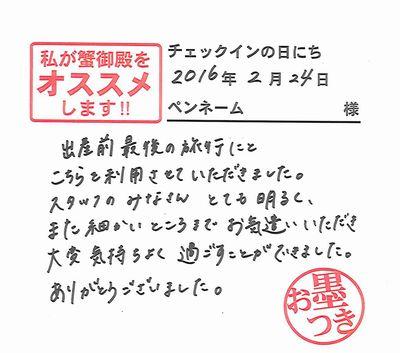 私が蟹御殿を
オススメ
します!!
チェックインの日にち
2016年 2月 24日
ペンネーム 様
出産前最後の旅行にと
こちらを利用させていただきました。
スタッフのみなさん とても明るく、
また細かいところまで お気遣いいただき
大変気持ちよく 過ごすことができました。
ありがとうございました。
お墨つき